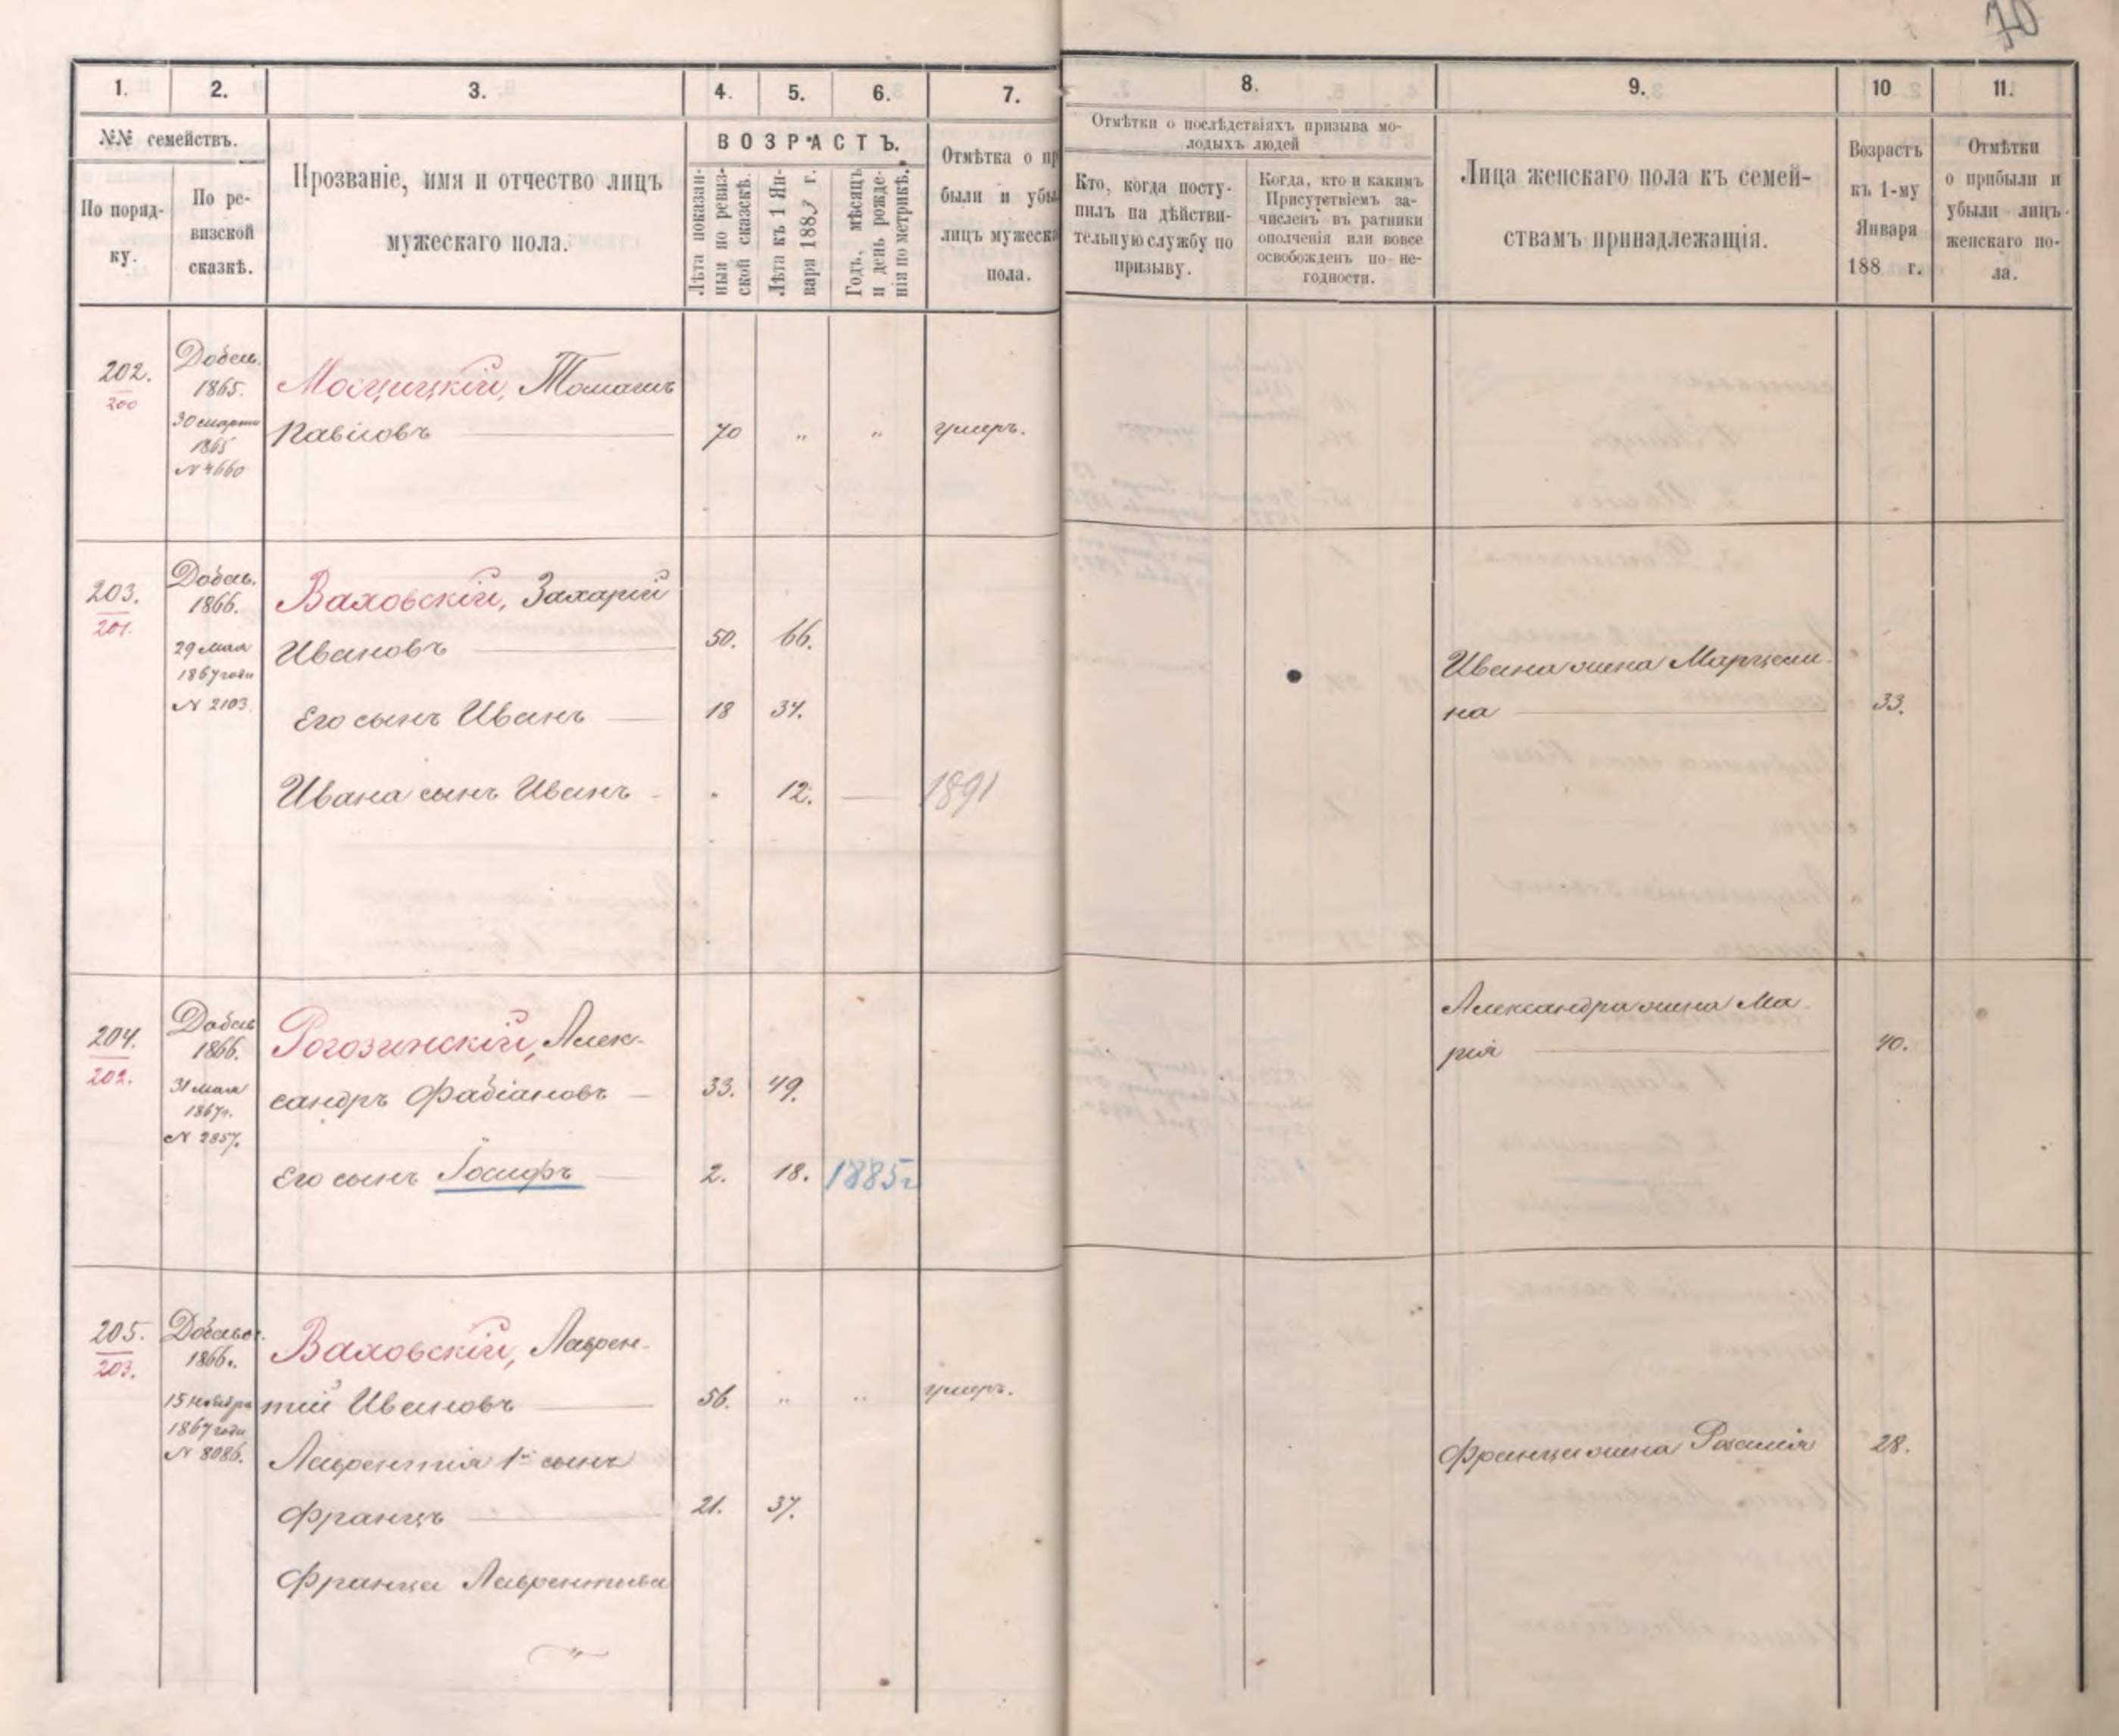 70
1.
2.
3.
4.
5.
6.
7.
8.
9.
10
11.
№№ семействъ.
По поряд-
ку.
По ре-
визской
сказкѣ.
Прозваніе, имя и отчество лицъ
мужескаго пола.
ВОЗРАСТЪ.
Лѣта показан-
ныя по ревиз-
ской сказкѣ.
Лѣта къ 1 Ян-
варя 1883 г.
Годъ, мѣсяцъ
и день рожде-
нія по метрикѣ.
Отмѣтка о пр
были и убы
лицъ мужеска
пола.
Отмѣтки о послѣдствіяхъ призыва мо-
лодыхъ людей
Кто, когда посту-
пилъ на дѣйстви-
тельную службу по
призыву.
Когда, кто и какимъ
Присутствіемъ за-
численъ въ ратники
ополченія или вовсе
освобожденъ по не-
годности.
Лица женскаго пола къ семей-
ствамъ принадлежащія.
Возрастъ
къ 1-му
Января
188 г.
Отмѣтки
о прибыли и
убыли лицъ
женскаго по-
ла.
202.
200
Добав.
1865.
30 марта
1865
№ 4660
Мосцицкій, Томашъ
Павловъ 70 " " умеръ.
203.
201.
Добав.
1866.
29 мая
1867 года
№ 2103.
Ваховскій, Захарій
Ивановъ 50. 66.
Его сынъ Иванъ 18 34.
Ивана сынъ Иванъ " 12. 1891
Ивана жена Марцели-
на 33.
204.
202.
Добав
1866.
31 мая
1867 г.
№ 2857.
Рогозинскій, Алек-
сандръ Фабіановъ 33. 49.
Его сынъ Іосифъ 2. 18. 1885 г
Александра жена Ма-
рія 40.
205.
203.
Добавоч.
1866 г.
15 ноября
1867 года
№ 8086.
Ваховскій, Лаврен-
тій Ивановъ 56. " " умеръ.
Лаврентія 1й сынъ
Францъ 21. 37.
Франца Лаврентьева
Франца жена Розалія 28.